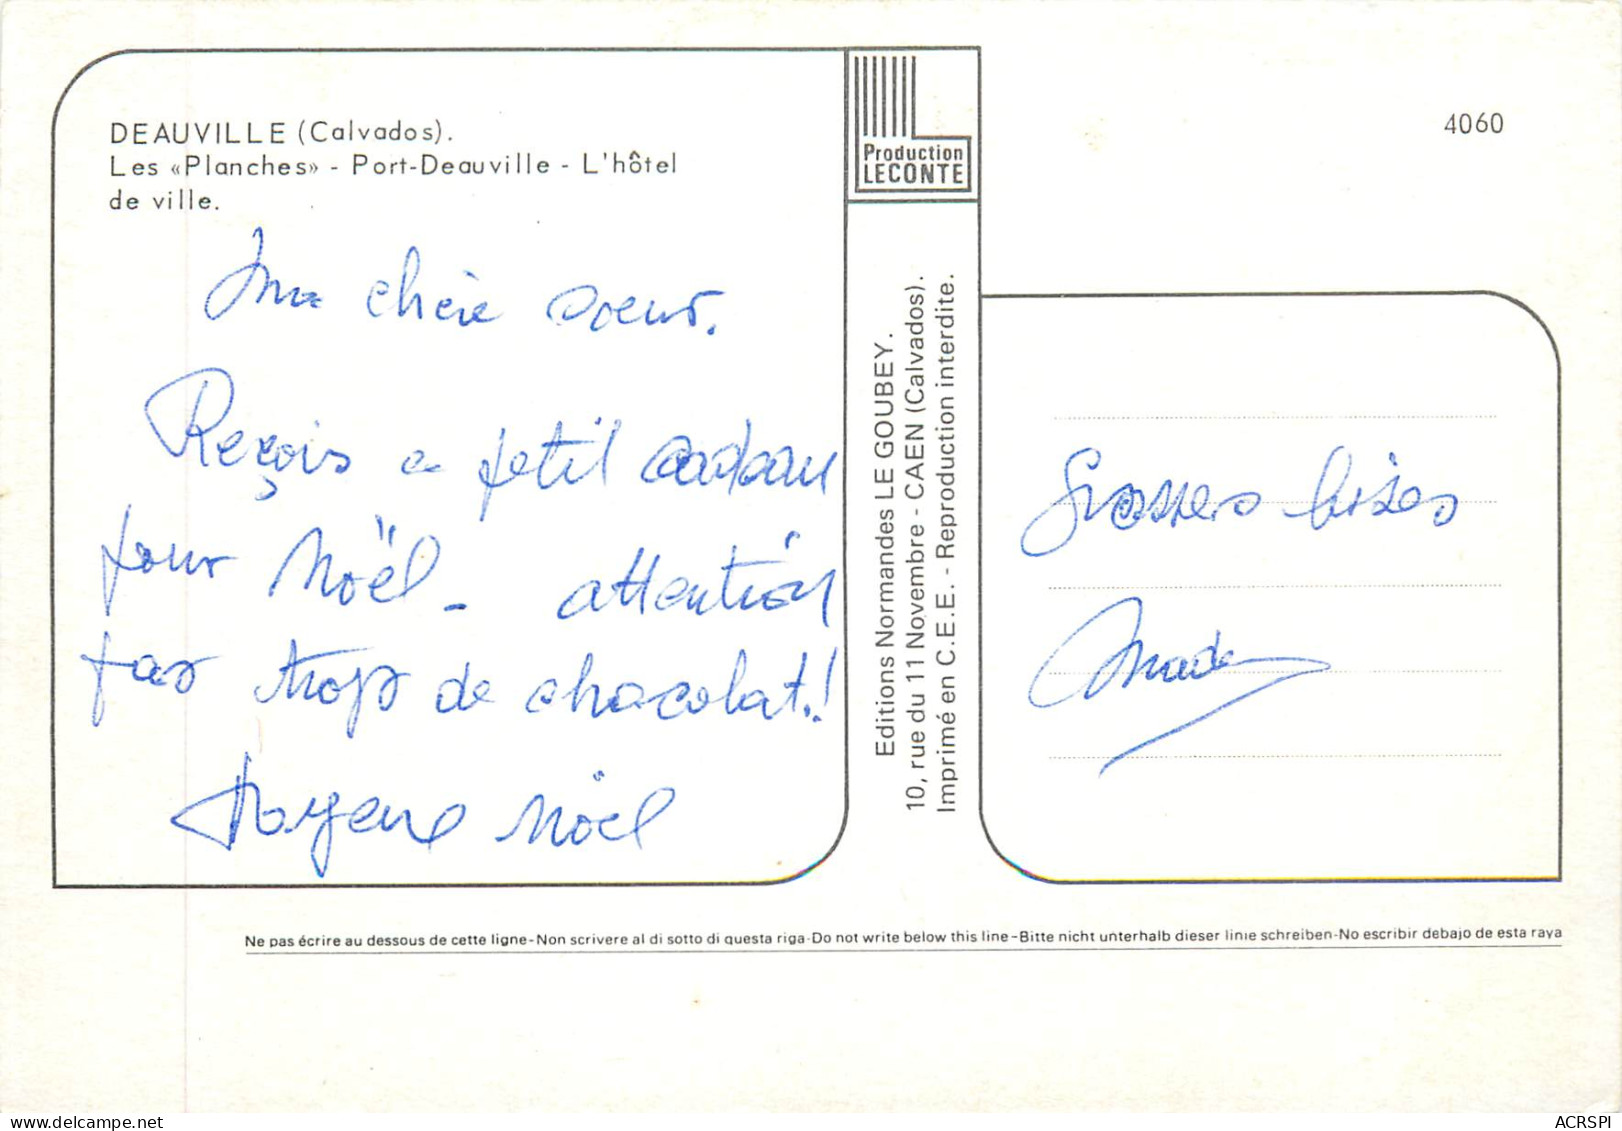 DEAUVILLE (Calvados).
Les «Planches» - Port-Deauville - L'hôtel
de ville.
ma chère soeur.
Reçois ce petit cadeau
pour Noël - attention
pas trop de chocolat.!
Joyeux Noël
Production
LECONTE
Editions Normandes LE GOUBEY.
10, rue du 11 Novembre - CAEN (Calvados).
Imprimé en C.E.E. - Reproduction interdite.
4060
Grosses bises
Ne pas écrire au dessous de cette ligne-Non scrivere al di sotto di questa riga-Do not write below this line-Bitte nicht unterhalb dieser linie schreiben-No escribir debajo de esta raya
ACRSPI